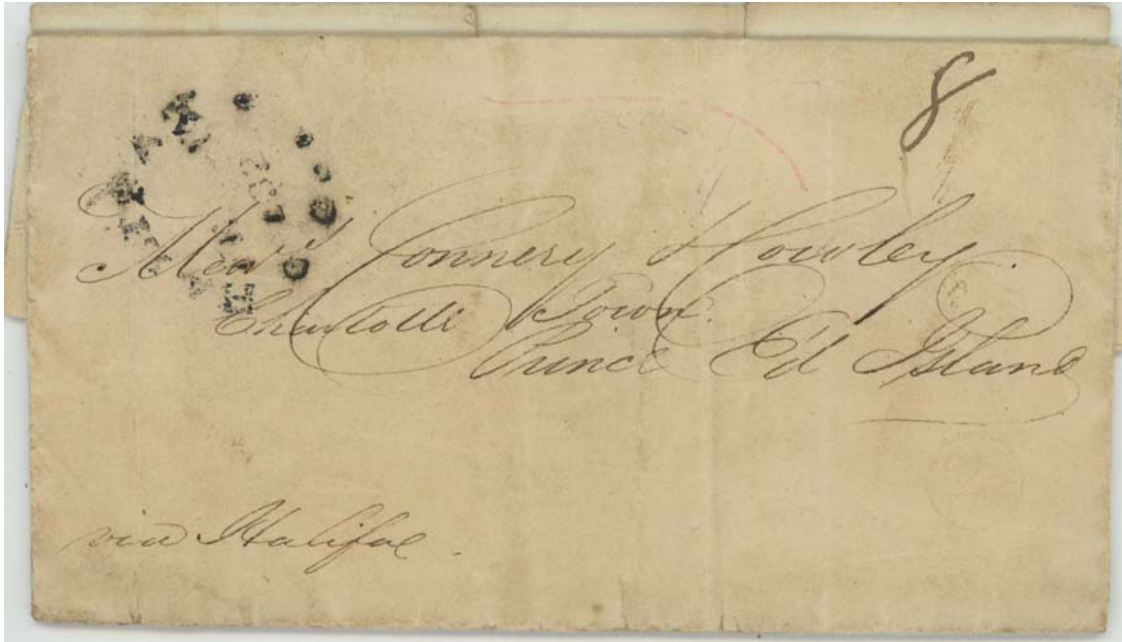 8
Mess's Connery & Cowley
Charlotte Town.
Prince Ed Island
via Halifax.